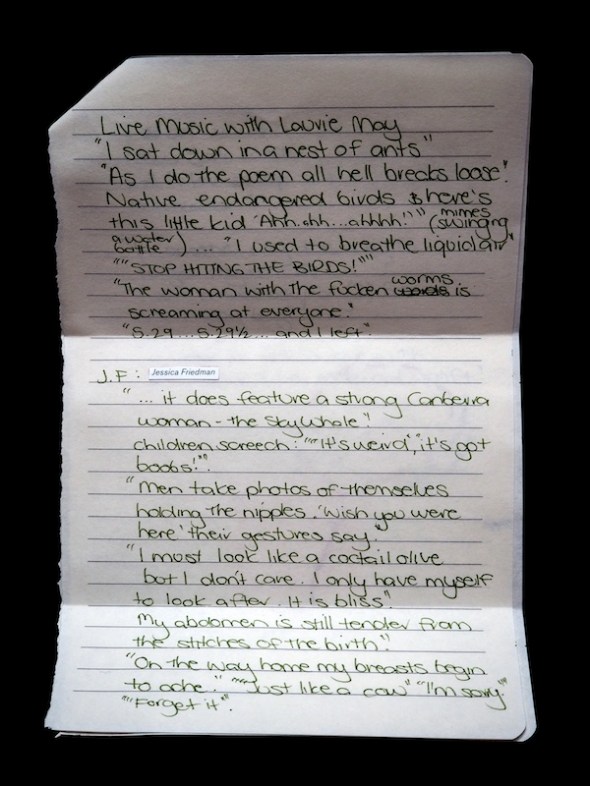 Live Music with Laurie May
"I sat down in a nest of ants"
"As I do the poem all hell breaks loose".
Native endangered birds & here's
this little kid 'Ahh..ahh...ahhhh!'" (mimes swinging
a water bottle) ... "I used to breathe liquid air"
""STOP HITTING THE BIRDS!""
"The woman with the fucken worms is
screaming at everyone."
"5.29... 5.29½... and I left".
J.F: Jessica Friedman
"... it does feature a strong Canberra
woman - the SkyWhale".
children screech: ""It's weird', 'it's got
boobs!'".
"Men take photos of themselves
holding the nipples. 'Wish you were
here' their gestures say."
"I must look like a coctail olive
but I don't care. I only have myself
to look after. It is bliss".
My abdomen is still tender from
the stitches of the birth."
"On the way home my breasts begin
to ache." ""Just like a cow" "I'm sorry."
""Forget it".